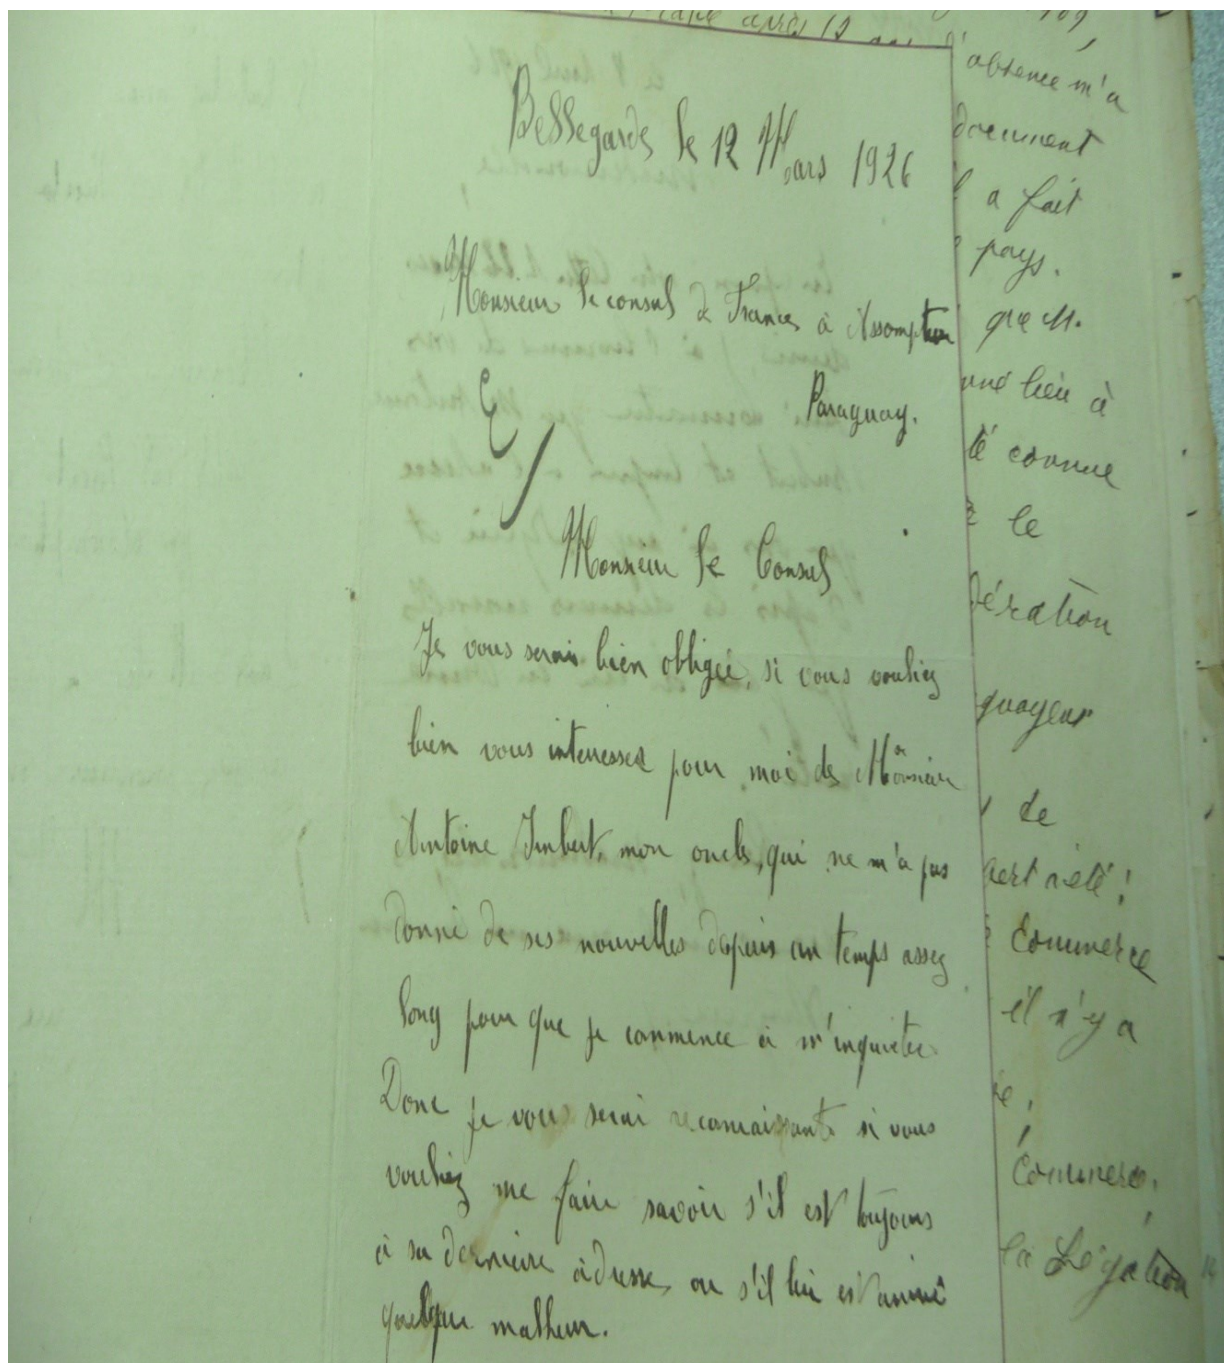 Bellegarde le 12 Mars 1926
Monsieur le consul de France à Assomption
Paraguay.
Monsieur le Consul
Je vous serais bien obligée, si vous vouliez
bien vous interesser pour moi de Monsieur
Antoine Imbert, mon oncle, qui ne m'a pas
donné de ses nouvelles depuis un temps assez
long pour que je commence à m'inquieter.
Donc je vous serai reconnaissante si vous
vouliez me faire savoir s'il est toujours
à sa dernière adresse, ou s'il lui est arrivé
quelque malheur.
après 12
absence m'a
document
a fait
pays.
que M.
lieu à
té connue
le
dération
de
Commerce
il n'y a
Commerce.
la Légation